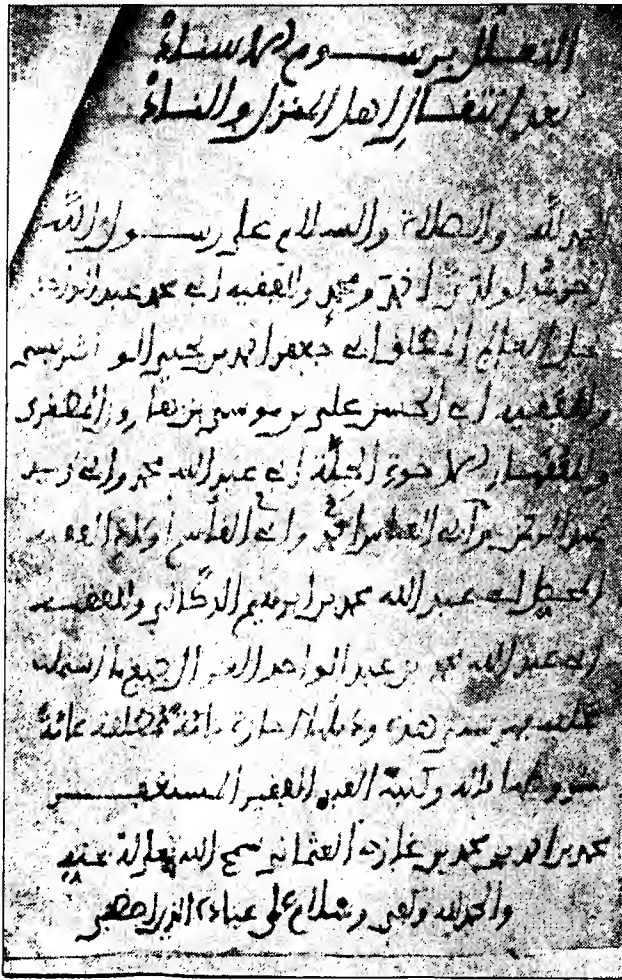 التعلل برسوم الإسناد
بعد انتقال أهل المنزل والناد
الحمد لله والصلاة والسلام على رسول الله
أجزت لولدي أحمد ومحمد والفقيه أبي محمد عبد
نجل العالم أبي جعفر أحمد بن يحيى الونشريسي
والفقيه أبي الحسن علي بن موسى بن هارون المطغري
والفقهاء الإخوة الجلة أبي عبد الله محمد وأبي زيد
عبد الرحمن وأبي العباس أحمد وأبي القاسم أولاد الفقيه
أبي عبد الله محمد بن إبراهيم الدكالي والفقيه
أبي عبد الله محمد بن عبد الواحد جميع ما اشتملت
عليه فهرستي هذه إجازة تامة مطلقة عامة
بشروطها وكتبه العبد الفقير المستغفر
محمد بن أحمد بن محمد بن غازي العثماني سمح الله تعالى له بمنه
والحمد لله وكفى وسلام على عباده الذين اصطفى